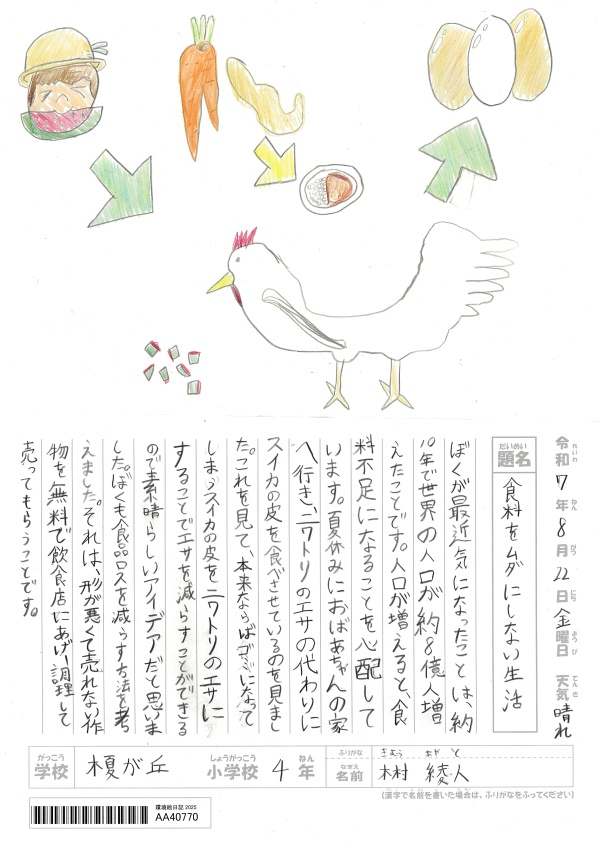 令和7年8月22日金曜日 天気 晴れ
れいわ ねん がつ にち ようび てんき
だいめい
題名 食料をムダにしない生活
ぼくが最近気になったことは、約
10年で世界の人口が約8億人増
えたことです。人口が増えると、食
料不足になることを心配して
います。夏休みにおばあちゃんの家
へ行き、ニワトリのエサの代わりに
スイカの皮を食べさせているのを見まし
た。これを見て、本来ならばゴミになって
しまうスイカの皮をニワトリのエサに
することでエサを減らすことができる
ので素晴らしいアイデアだと思いま
した。ぼくも食品ロスを減らす方法を考
えました。それは、形が悪くて売れない作
物を無料で飲食店にあげ、調理して
売ってもらうことです。
がっこう しょうがっこう ねん ふりがな
学校 榎が丘 小学校 4年
なまえ
名前 綾人
(漢字で名前を書いた場合は、ふりがなをふってください)
環境絵日記 2025
AA40770